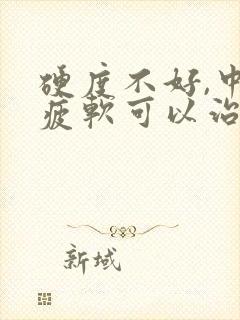 硬度不好,中
疲軟可以治
新域